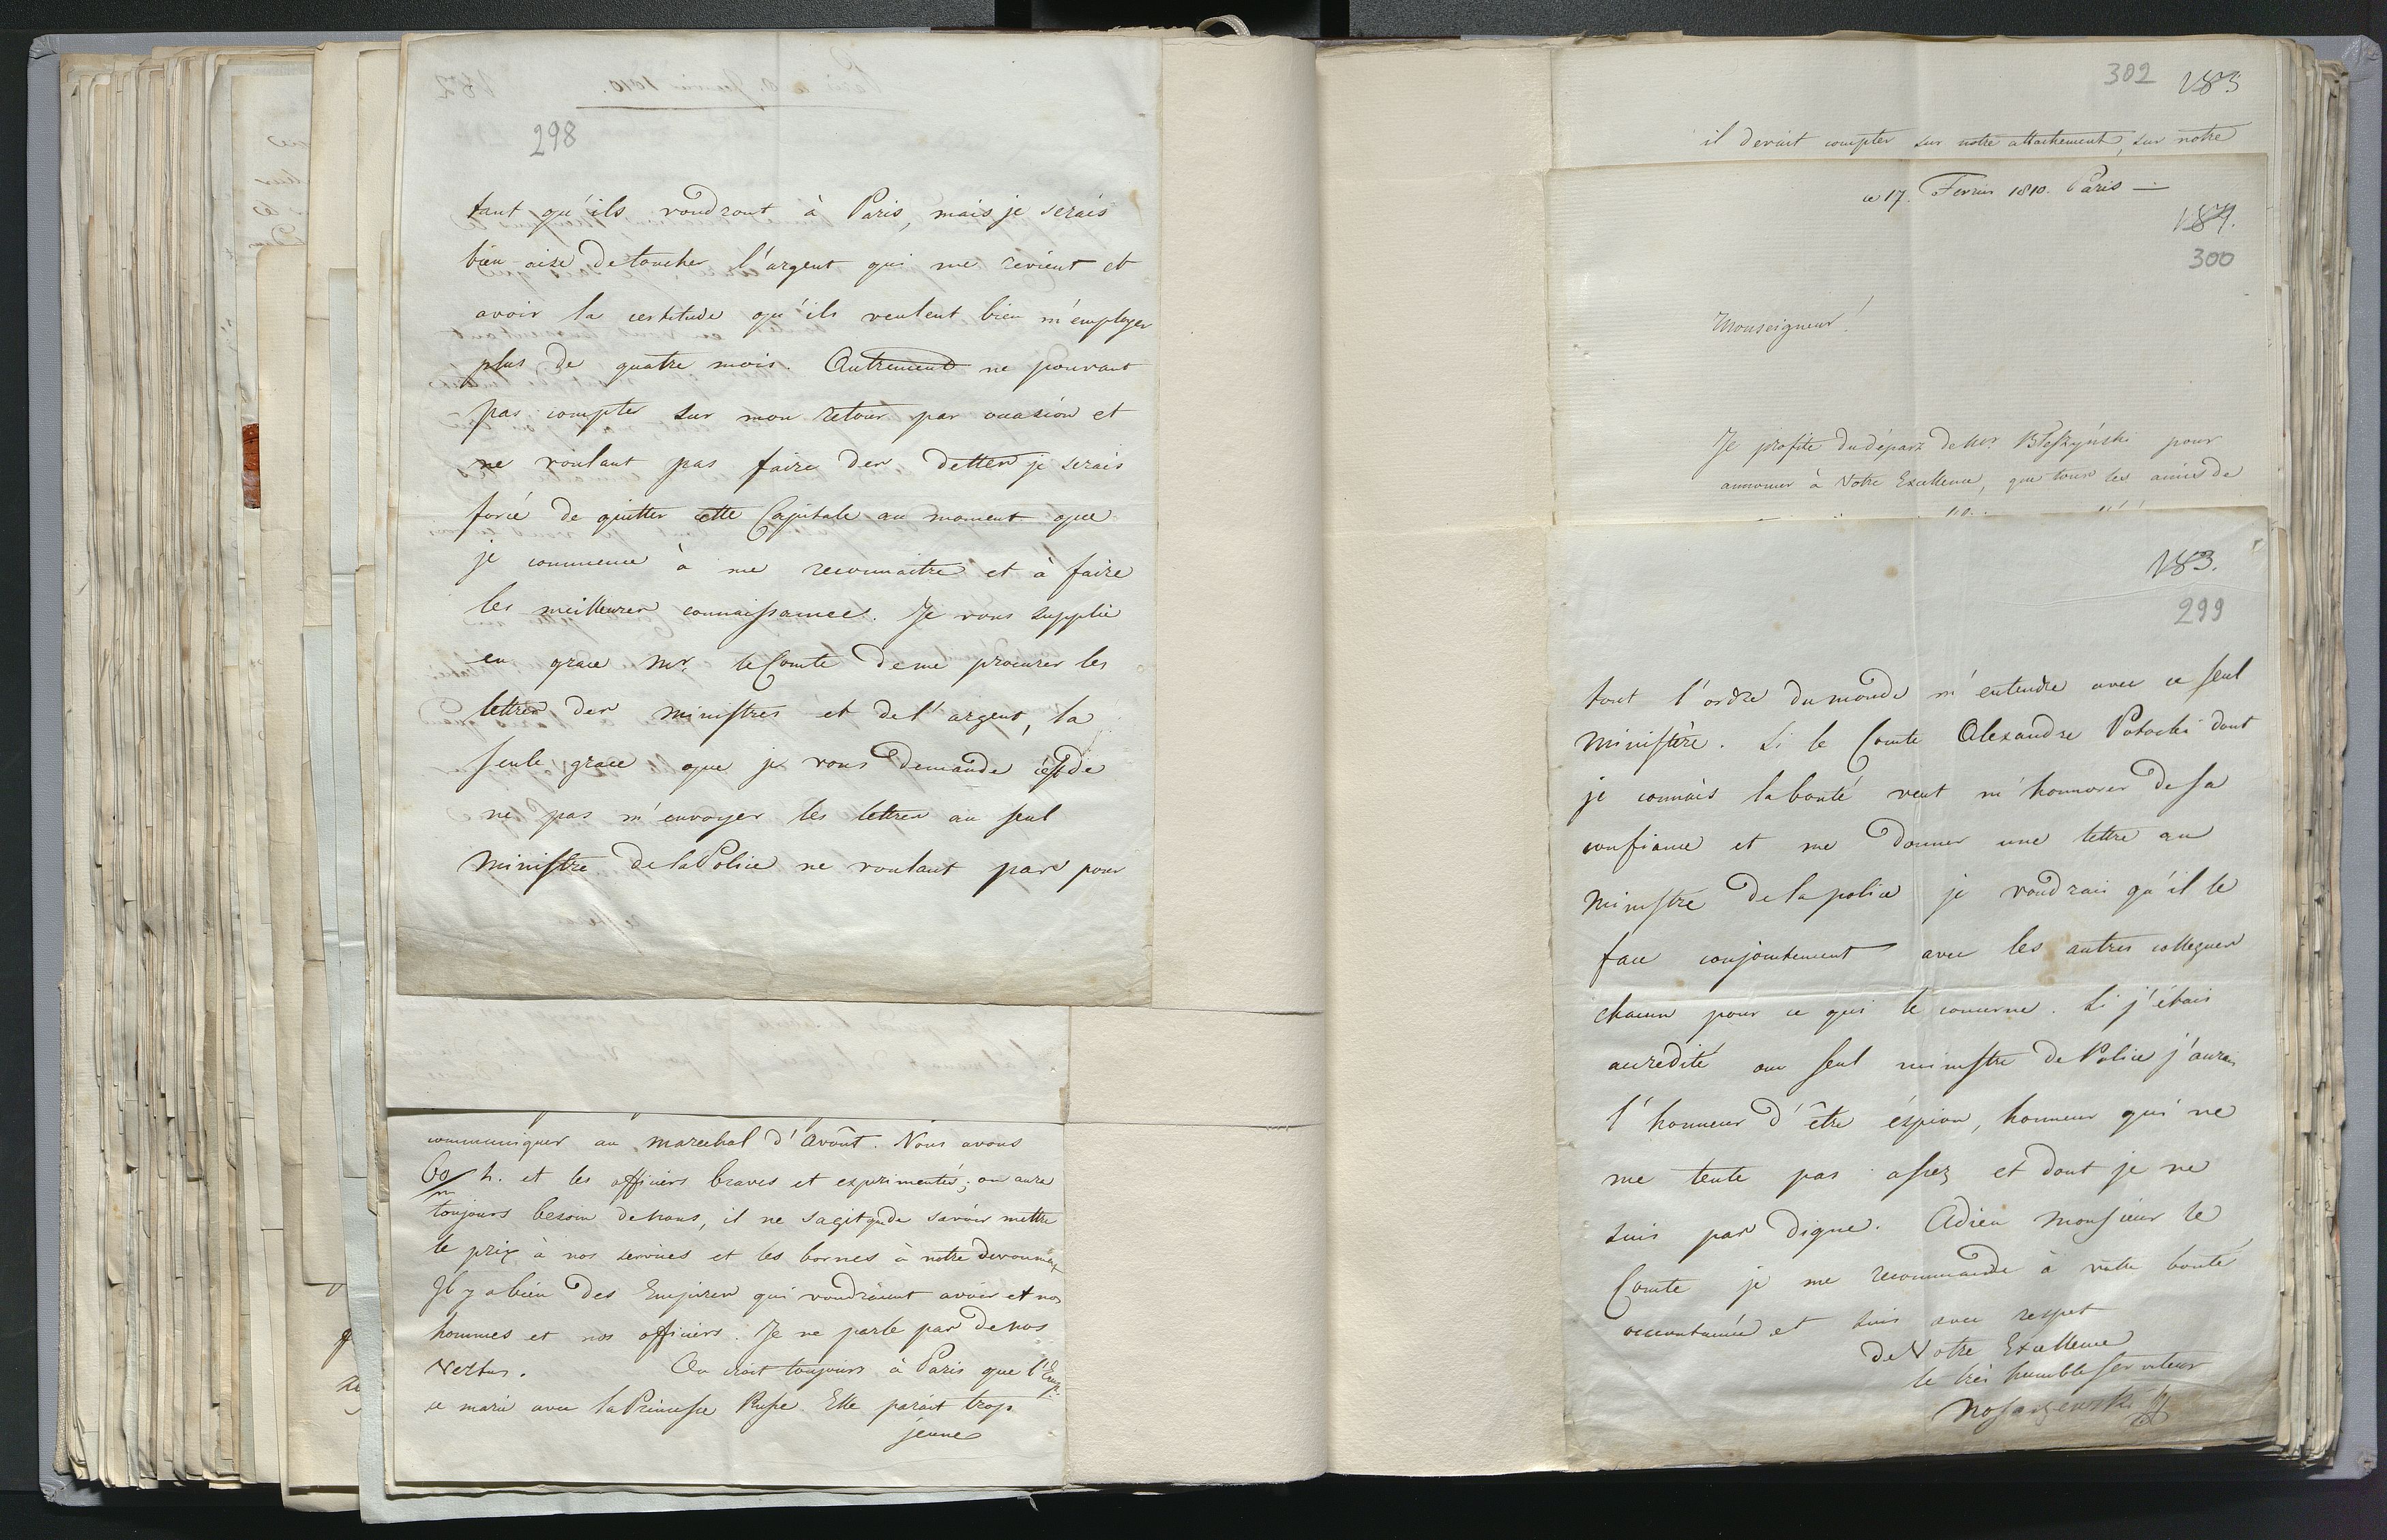 298
tant qu'ils voudront à Paris, mais je serais
bien aize de toucher l'argent qui me revient et
avoir la certitude qu'ils veulent bien m'employer
plus de quatre mois. Autrement ne pouvant
pas compter sur mon retour par occasion et
ne voulant pas faire des dettes je serais
forcé de quitter cette Capitale au moment que
je commence à me reconnaitre et à faire
les meilleures connaissances. Je vous supplie
en grace Mr. le Comte de me procurer les
lettres des Ministres et de l'argent, la
seule grace que je vous demande c'est de
ne pas m'envoyer les lettres au seul
Ministre de la Police ne voulant pas pour
communiquer au marechal d'Avoût. Nous avons
60/m h. et les officiers braves et exprimentés; on aura
toujours besoin de nous, il ne s'agit que de savoir mettre
le prix à nos services et les bornes à notre
Il y a bien des Empires qui voudraient avoir et nos
hommes et nos officiers. Je ne parle pas de nos
vertus. On croit toujours à Paris que l'Emp.
se marie avec la Princesse Russe. Elle parait trop
jeune
302 183
il devait compter sur notre attachement, sur notre
ce 17. Fevrier 1810. Paris —
184.
300
Monseigneur!
Je profite du départ de Mr. Bleszyński pour
annoncer à Votre Excellence, que tous les amis de
183.
299
tout l'ordre du monde m'entendre avec ce seul
Ministère. Si le Comte Alexandre Potocki dont
je connais la bonté veut m'honnorer de sa
confiance et me donner une lettre au
Ministre de la police je voudrais qu'il le
face conjointement avec les autres collegues
chacun pour ce qui le concerne. Si j'étais
accredité au seul ministre de Police j'aurais
l'honneur d'être éspion, honneur qui ne
me tente pas assez et dont je ne
suis pas digne. Adieu Monsieur le
Comte je me recommande à votre bonté
accoutumée et suis avec respet
de Votre Excellence
le très humble serviteur